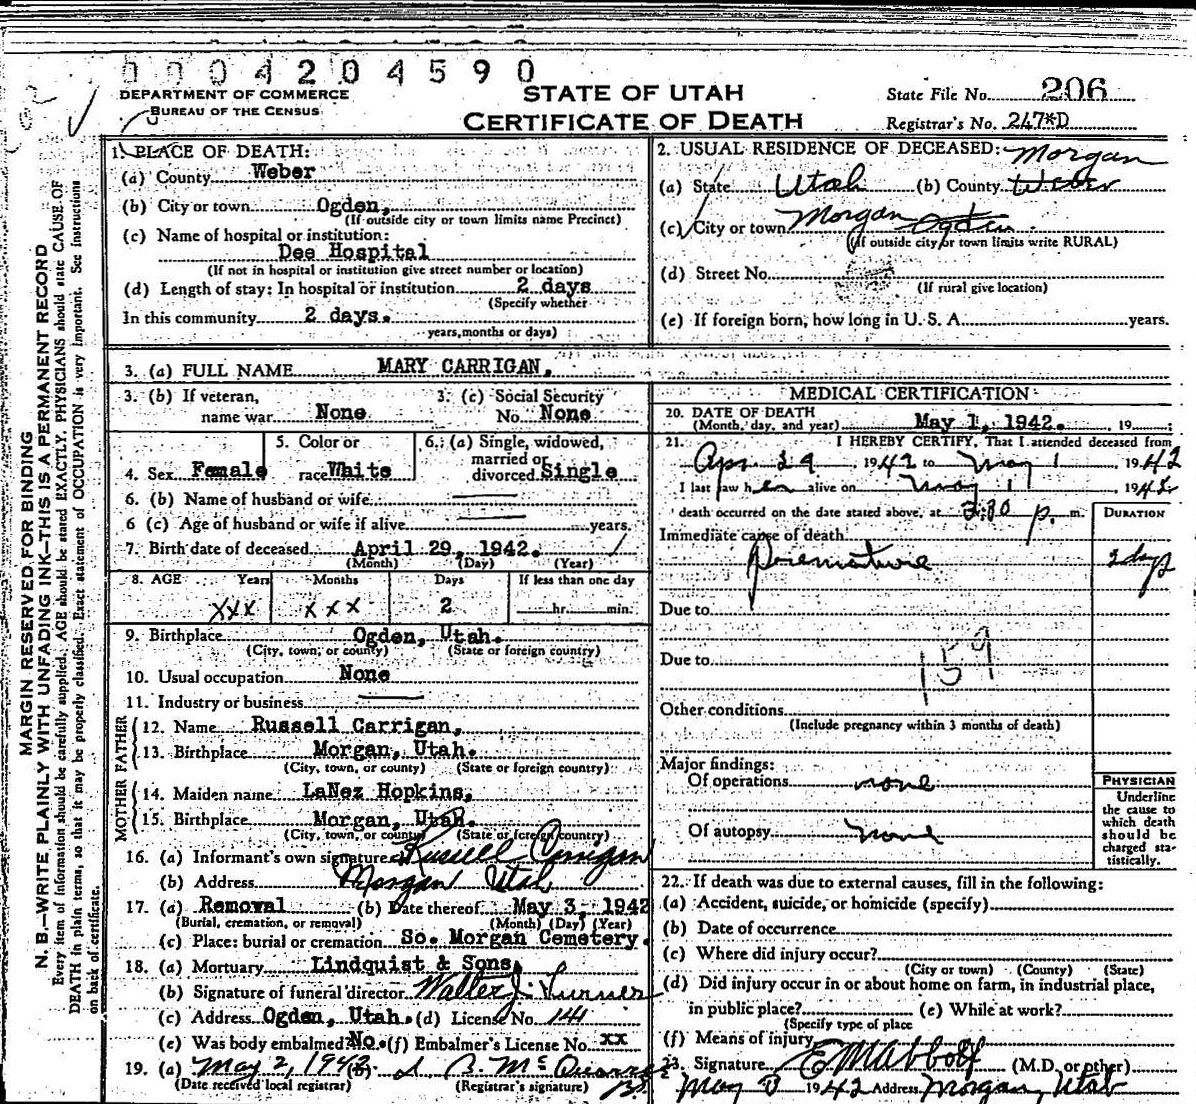 0004204590
DEPARTMENT OF COMMERCE
BUREAU OF THE CENSUS
STATE OF UTAH
CERTIFICATE OF DEATH
State File No. 206
Registrar's No. 247*D
MARGIN RESERVED FOR BINDING
N. B.—WRITE PLAINLY WITH UNFADING INK—THIS IS A PERMANENT RECORD
Every item of information should be carefully supplied. AGE should be stated EXACTLY. PHYSICIANS should state CAUSE OF
DEATH in plain terms, so that it may be properly classified. Exact statement of OCCUPATION is very important. See instructions
on back of certificate.
1. PLACE OF DEATH:
(a) County Weber
(b) City or town Ogden,
(If outside city or town limits name Precinct)
(c) Name of hospital or institution:
Dee Hospital
(If not in hospital or institution give street number or location)
(d) Length of stay: In hospital or institution 2 days
(Specify whether
In this community 2 days.
years, months or days)
2. USUAL RESIDENCE OF DECEASED: Morgan
(a) State Utah (b) County Weber
(c) City or town Morgan Ogden
(If outside city or town limits write RURAL)
(d) Street No.
(If rural give location)
(e) If foreign born, how long in U. S. A. years.
3. (a) FULL NAME MARY CARRIGAN.
3. (b) If veteran,
name war None
3. (c) Social Security
No. None
4. Sex Female
5. Color or
race White
6. (a) Single, widowed,
married or
divorced Single
6. (b) Name of husband or wife
6 (c) Age of husband or wife if alive years.
7. Birth date of deceased April 29, 1942.
(Month) (Day) (Year)
8. AGE Years Months Days If less than one day
XXX XXX 2 hr. min.
9. Birthplace Ogden, Utah.
(City, town, or county) (State or foreign country)
10. Usual occupation None
11. Industry or business
FATHER
12. Name Russell Carrigan,
13. Birthplace Morgan, Utah.
(City, town, or county) (State or foreign country)
MOTHER
14. Maiden name LaNez Hopkins,
15. Birthplace Morgan, Utah.
(City, town, or county) (State or foreign country)
16. (a) Informant's own signature Russell Carrigan
(b) Address Morgan Utah
17. (a) Removal (b) Date thereof May 3, 1942
(Burial, cremation, or removal) (Month) (Day) (Year)
(c) Place: burial or cremation So. Morgan Cemetery.
18. (a) Mortuary Lindquist & Sons,
(b) Signature of funeral director Walter J. Turner
(c) Address Ogden, Utah. (d) License No. 141
(e) Was body embalmed? No. (f) Embalmer's License No. xx
19. (a) May 2, 1942 (b)
(Date received local registrar) (Registrar's signature)
MEDICAL CERTIFICATION
20. DATE OF DEATH
(Month, day, and year) May 1, 1942. , 19 ;
21. I HEREBY CERTIFY, That I attended deceased from
Apr 29 , 1942 to May 1 , 1942
I last saw her alive on May 1 , 1942
death occurred on the date stated above, at p. m.
DURATION
Immediate cause of death
Premature 2 days
Due to
Due to
159
Other conditions
(Include pregnancy within 3 months of death)
Major findings:
Of operations none
Of autopsy none
PHYSICIAN
Underline
the cause to
which death
should be
charged sta-
tistically.
22. If death was due to external causes, fill in the following:
(a) Accident, suicide, or homicide (specify)
(b) Date of occurrence
(c) Where did injury occur?
(City or town) (County) (State)
(d) Did injury occur in or about home on farm, in industrial place,
in public place? (e) While at work?
(Specify type of place
(f) Means of injury
23. Signature E M Abbott (M.D. or other)
May 1942 Address Morgan, Utah